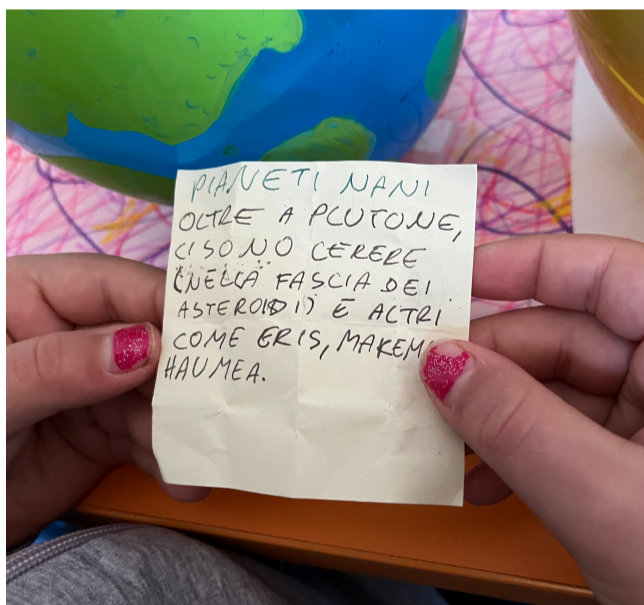 PIANETI NANI
OLTRE A PLUTONE,
CI SONO CERERE
(NELLA FASCIA DEI
ASTEROIDI) E ALTRI
COME ERIS,
HAUMEA.